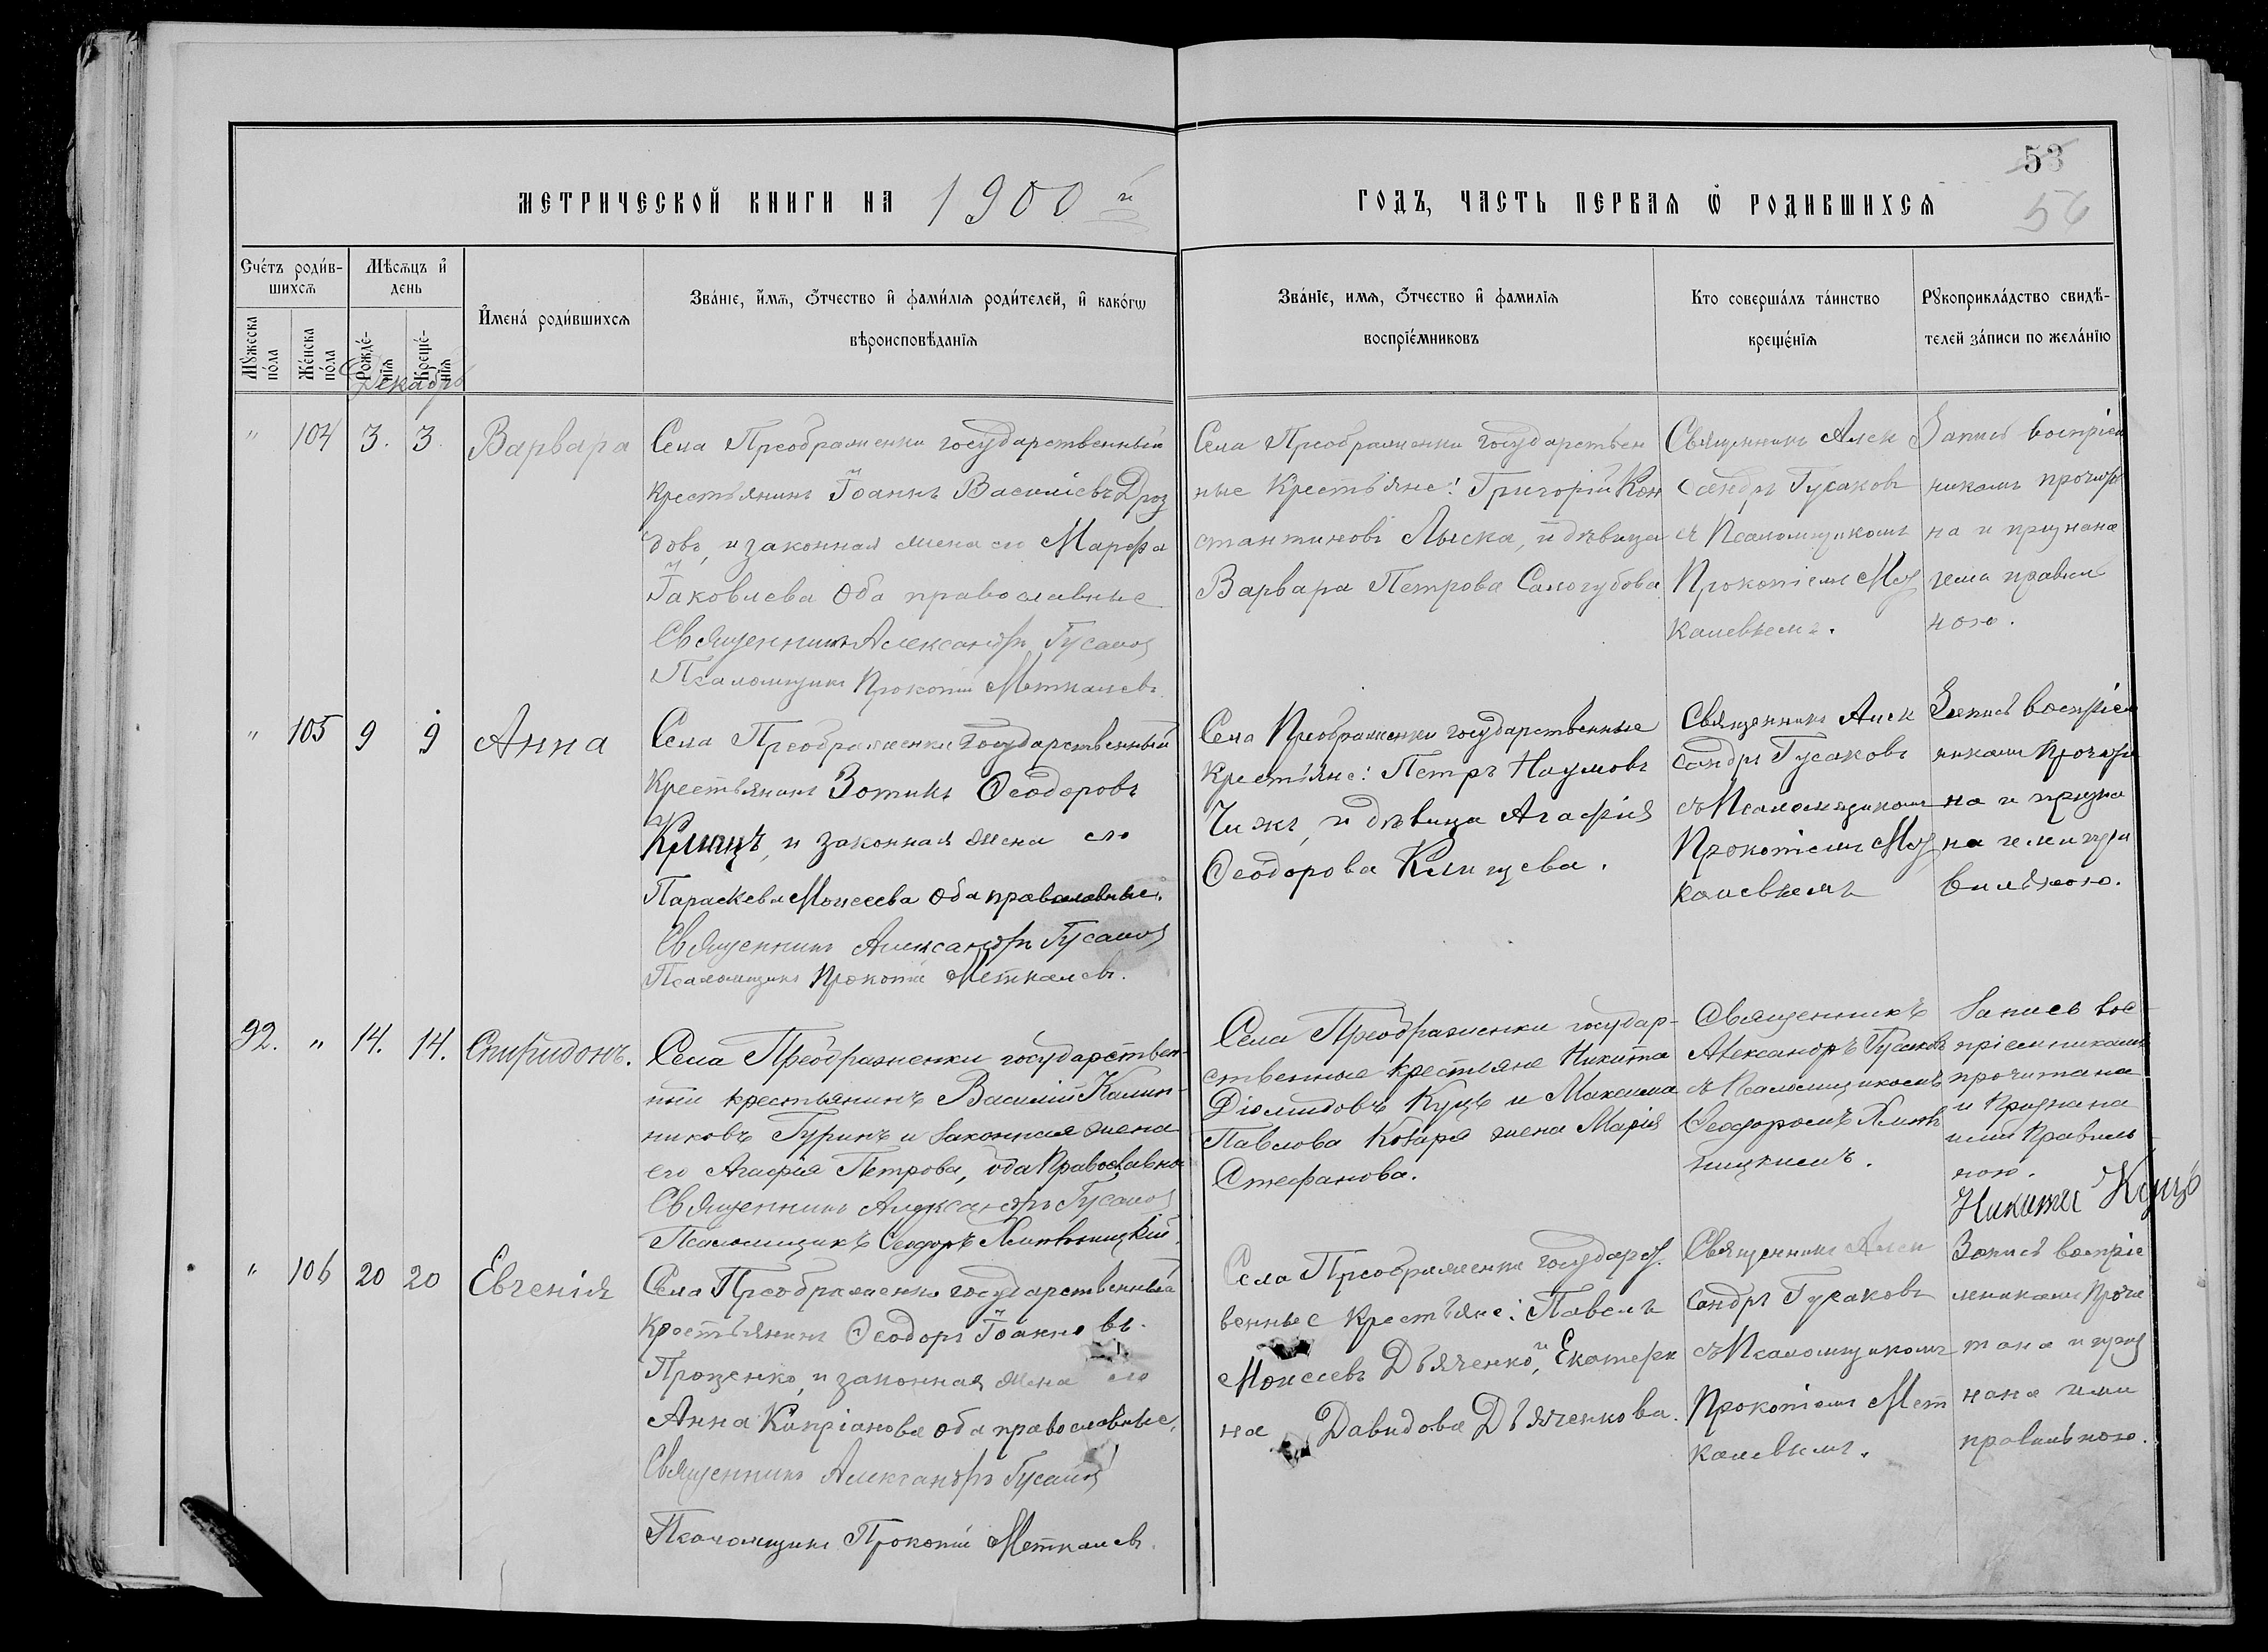 53
56
МЕТРИЧЕСКОЙ КНИГИ НА 1900 й
ГОДЪ, ЧАСТЬ ПЕРВАЯ Ѿ РОДИВШИХСЯ
Счетъ родив-
шихся
Мѣсяцъ и
день
Мужеска пола
Женска пола
Рожде-
нія
Креще-
нія
Имена родившихся
Званіе, имя, отчество и фамилія родителей, и какогѡ
вѣроисповѣданія
Званіе, имя, отчество и фамилія
воспріемниковъ
Кто совершалъ таинство
крещенія
Рукоприкладство свидѣ-
телей записи по желанію
Декабрь
" 104 3. 3. Варвара
Села Преображенки государственный
Крестьянинъ Іоаннъ Василіевъ Дроз
довъ, и законная жена его Марфа
Іаковлева оба православные
Священникъ Александръ Гусаков
Псаломщикъ Прокопій Меткалевъ.
Села Преображенки государствен
ные Крестьяне: Григорій Кон
стантиновъ Лыска, и дѣвица
Варвара Петрова Самогубова
Священникъ Алек
сандръ Гусаковъ
съ Псаломщикомъ
Прокопіемъ Мет
калевымъ.
Запись воспріем
никамъ прочита
на и признана
ими правиль
ною.
" 105 9 9 Анна
Села Преображенки государственный
Крестьянинъ Зотикъ Ѳеодоровъ
Клищъ, и законная жена его
Параскева Моисеева оба православные.
Священникъ Александръ Гусаков
Псаломщикъ Прокопій Меткалевъ.
Села Преображенки государственные
Крестьяне: Петръ Наумовъ
Чижъ, и дѣвица Агафія
Ѳеодорова Клищева.
Священникъ Алек
сандръ Гусаковъ
съ Псаломщикомъ
Прокопіемъ Мет
калевымъ
Запись воспріем
никами прочита
на и призна
на ими пра
вильною.
92. " 14. 14. Спиридонъ.
Села Преображенки государствен-
ный крестьянинъ Василій Калин-
никовъ Гуринъ и законная жена
его Агафія Петрова, оба Православные
Священникъ Александръ Гусаков
Псаломщикъ Ѳеодоръ
Села Преображенки государ-
ственные крестьяне Никита
Діомидовъ Куцъ и Максима
Павлова Кобаря жена Марія
Стефанова.
Священникъ
Александръ Гусаковъ
съ Псаломщикомъ
Ѳеодоромъ
ницкимъ.
Запись вос
пріемниками
прочитана
и Признана
ими Правиль
ною.
Никита Куцъ
" 106 20 20 Евгенія
Села Преображенки государственный
Крестьянинъ Ѳеодоръ Іоанновъ
Проценко, и законная жена его
Анна Кипріанова оба православные,
Священникъ Александръ Гусаков
Псаломщикъ Прокопій Меткалевъ.
Села Преображенки государст
венные Крестьяне: Павелъ
Моисеевъ Дьяченко, и Екатери
на Давидова Дьяченкова.
Священникъ Алек
сандръ Гусаковъ
съ Псаломщикомъ
Прокопіемъ Мет
калевымъ.
Запись воспріе
мниками прочи
тана и приз
нана ими
правильною.